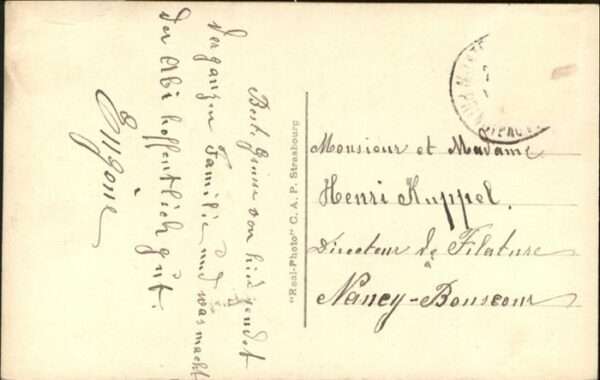 Beste Grüsse von hier sendet
der ganzen Familie und was macht
der Abi hoffentlich gut.
Eugène
"Real-Photo" C. A. P. Strasbourg
Monsieur et Madame
Henri Kuppel.
Directeur de Filature
Nancy-Bonsecours